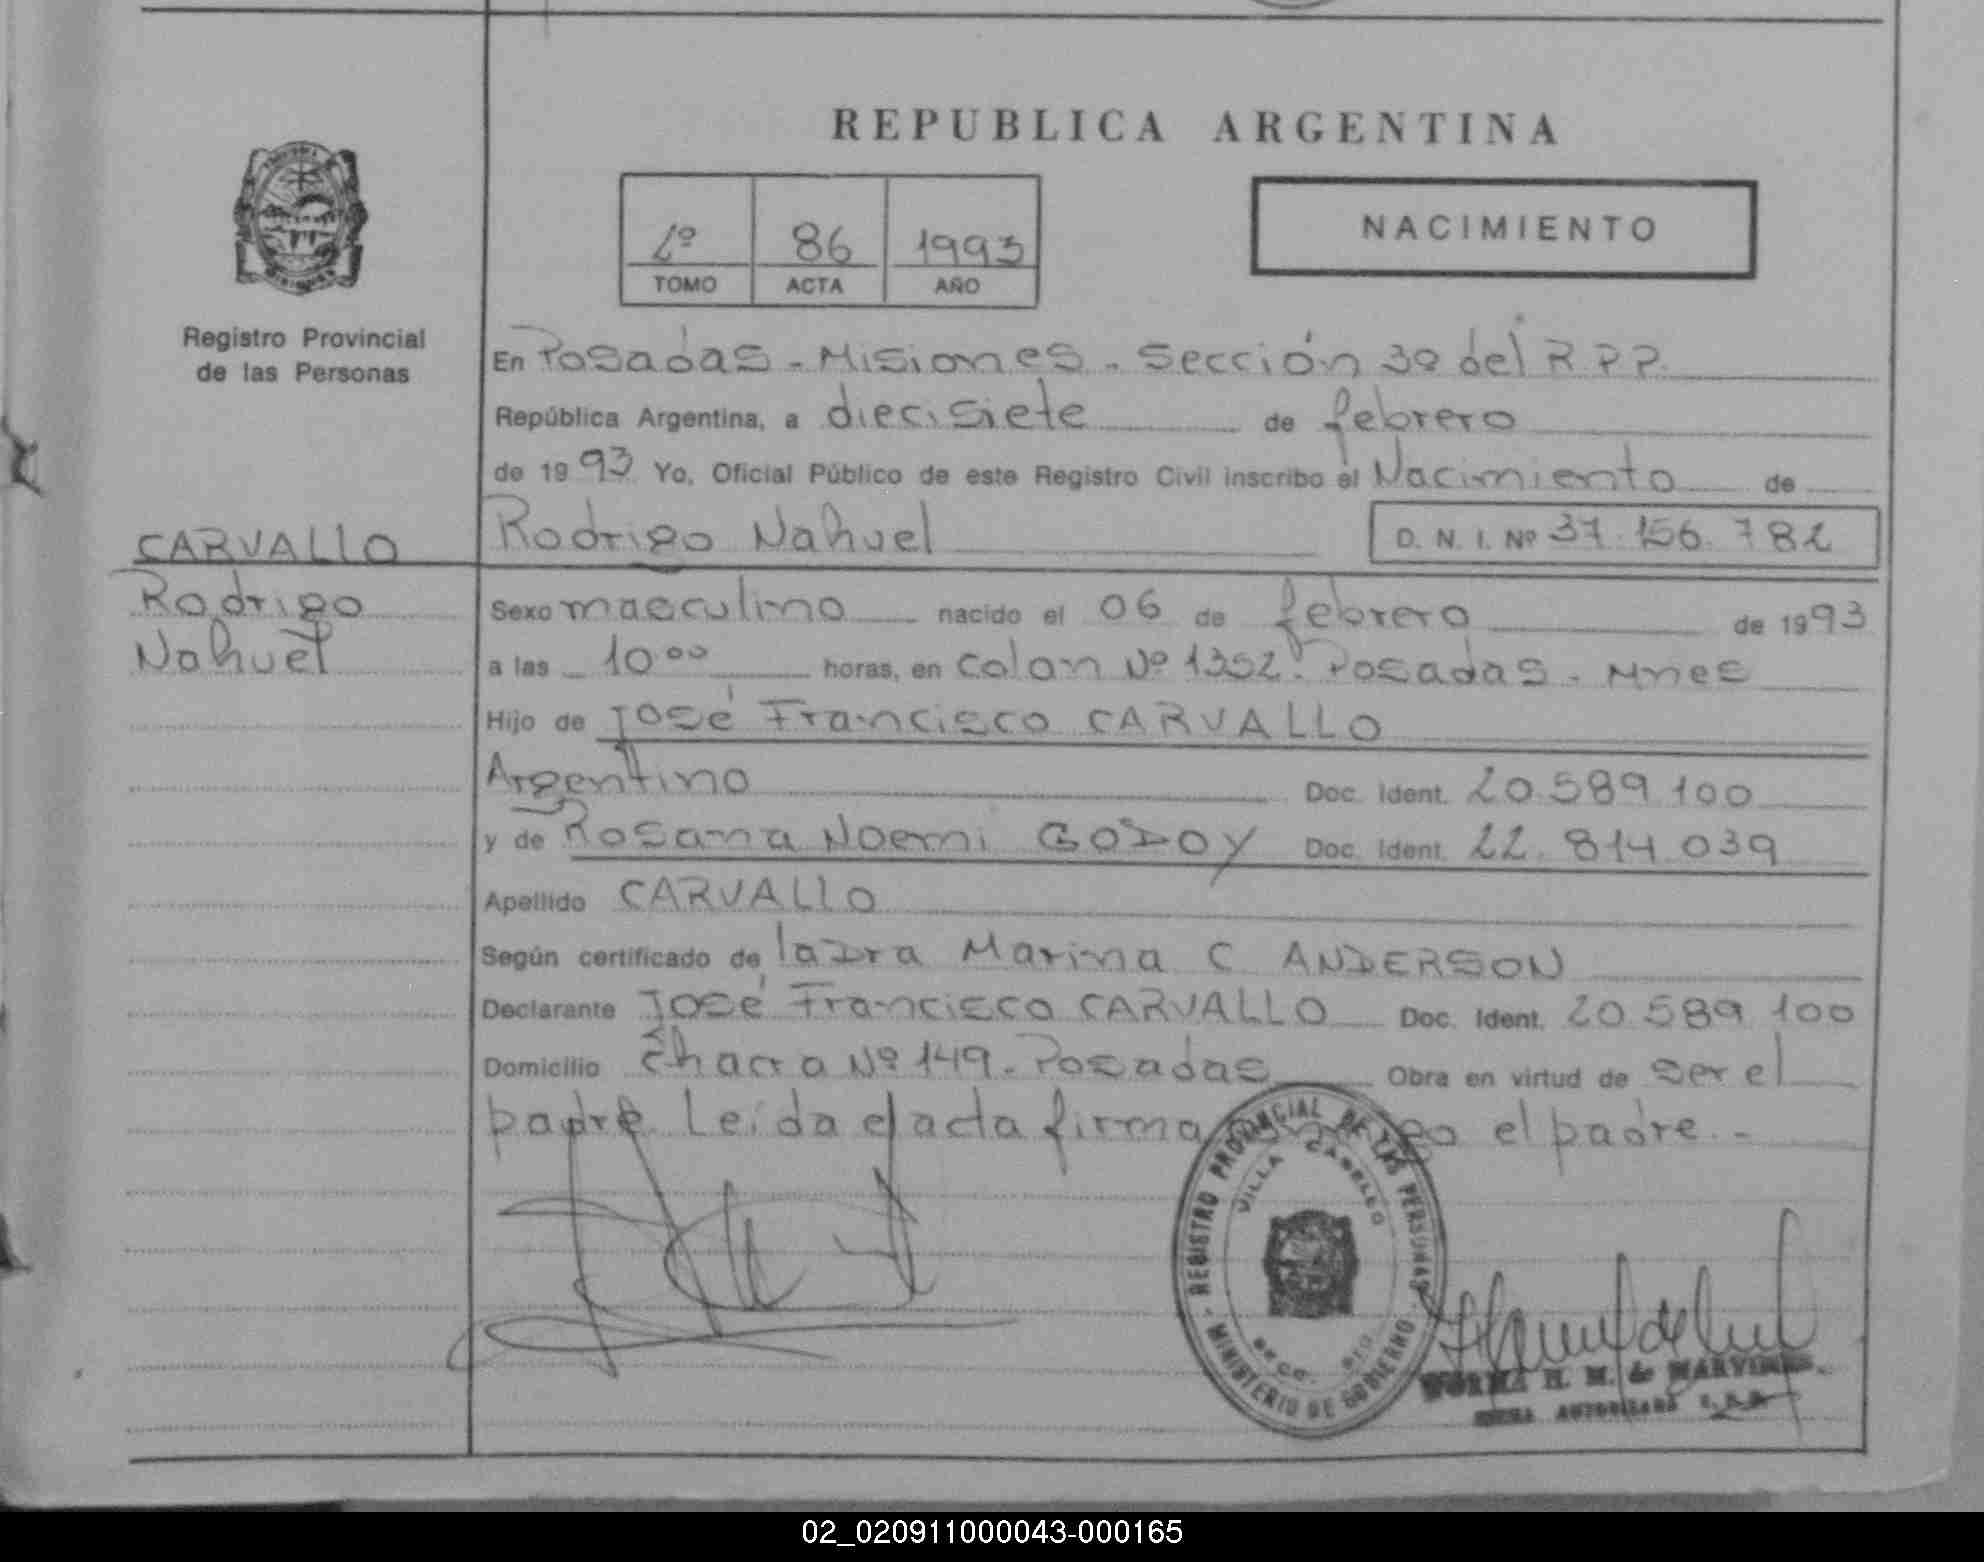 REPUBLICA ARGENTINA
NACIMIENTO
2º 86 1993
TOMO ACTA AÑO
Registro Provincial
de las Personas
En Posadas - Misiones - Sección 3º del R.P.P.
República Argentina, a diecisiete de febrero
de 1993 Yo, Oficial Público de este Registro Civil inscribo el Nacimiento de
Rodrigo Nahuel D. N. I. Nº 37.156.782
CARVALLO
Rodrigo
Nahuel
Sexo masculino nacido el 06 de febrero de 1993
a las 10 00 horas, en Colon Nº 1352. Posadas - Mnes
Hijo de José Francisco CARVALLO
Argentino Doc. Ident. 20.589.100
y de Rosana Noemi GODOY Doc. Ident. 22.814.039
Apellido CARVALLO
Según certificado de la Dra Marina C. ANDERSON
Declarante José Francisco CARVALLO Doc. Ident. 20.589.100
Domicilio Chacra Nº 149 - Posadas Obra en virtud de ser el
padre. Leída el acta firma el padre. -
REGISTRO PROVINCIAL DE LAS PERSONAS
VILLA CABELLO
MINISTERIO DE GOBIERNO
NORMA H. M. de MARTINEZ
FIRMA AUTORIZADA
02_020911000043-000165